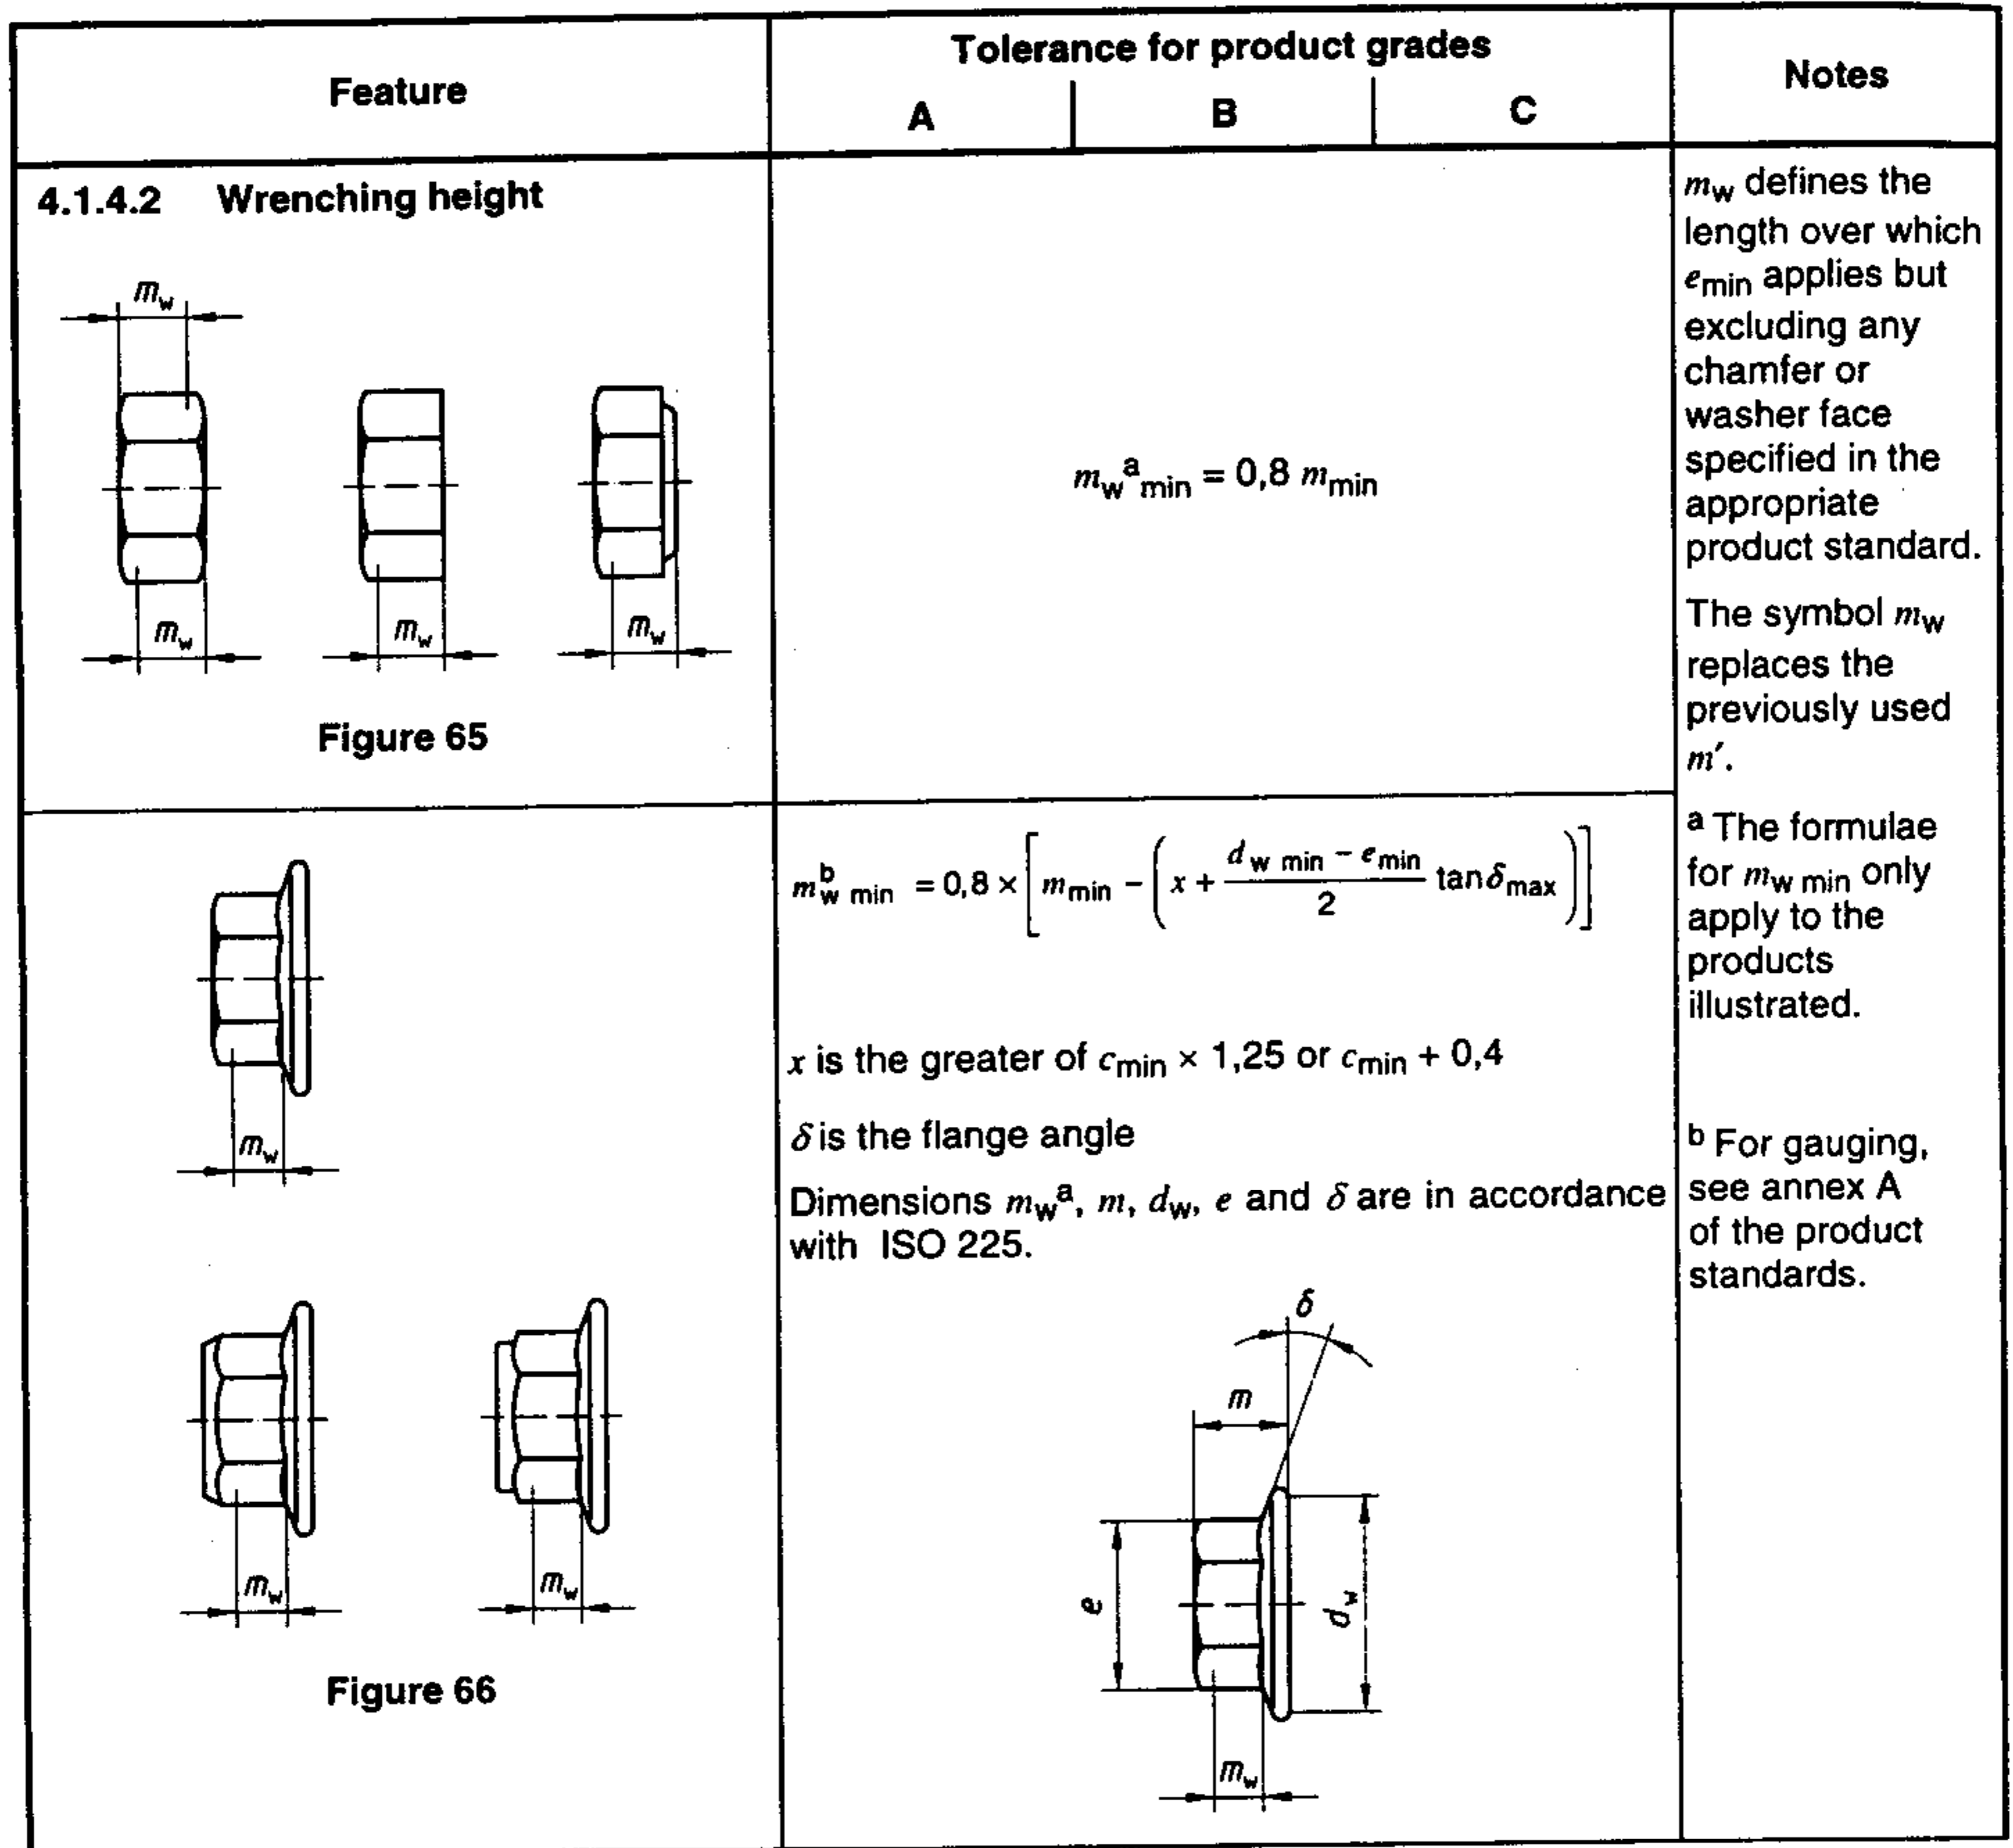 Feature
Tolerance for product grades
A
B
C
Notes
4.1.4.2 Wrenching height
m_w
m_w
m_w
m_w
Figure 65
m_w^a min = 0,8 m_min
m_w defines the
length over which
e_min applies but
excluding any
chamfer or
washer face
specified in the
appropriate
product standard.
The symbol m_w
replaces the
previously used
m′.
m_w
m_w
m_w
Figure 66
m^b_w min = 0,8 × [m_min − (x + (d_w min − e_min)/2 tan δ_max)]
x is the greater of c_min × 1,25 or c_min + 0,4
δ is the flange angle
Dimensions m_w^a, m, d_w, e and δ are in accordance
with ISO 225.
δ
m
e
d_w
m_w
a The formulae
for m_w min only
apply to the
products
illustrated.
b For gauging,
see annex A
of the product
standards.